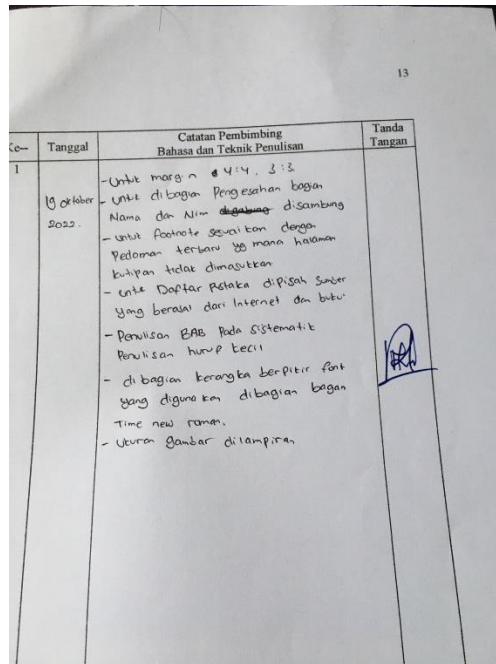 13
Ke-- Tanggal Catatan Pembimbing Bahasa dan Teknik Penulisan Tanda Tangan
1
19 oktober 2022.
- Untuk margin 4:4, 3:3
- untuk dibagian Pengesahan bagian
Nama dan Nim digabung disambung
- untuk footnote sesuaikan dengan
Pedoman terbaru yg mana halaman
kutipan tidak dimasukkan
- untk Daftar Pustaka dipisah Sumber
yang berasal dari Internet dan buku.
- Penulisan BAB Pada Sistematik
Penulisan hurup kecil
- di bagian kerangka berpikir font
yang digunakan dibagian bagan
Time new roman.
- Ukuran gambar dilampiran